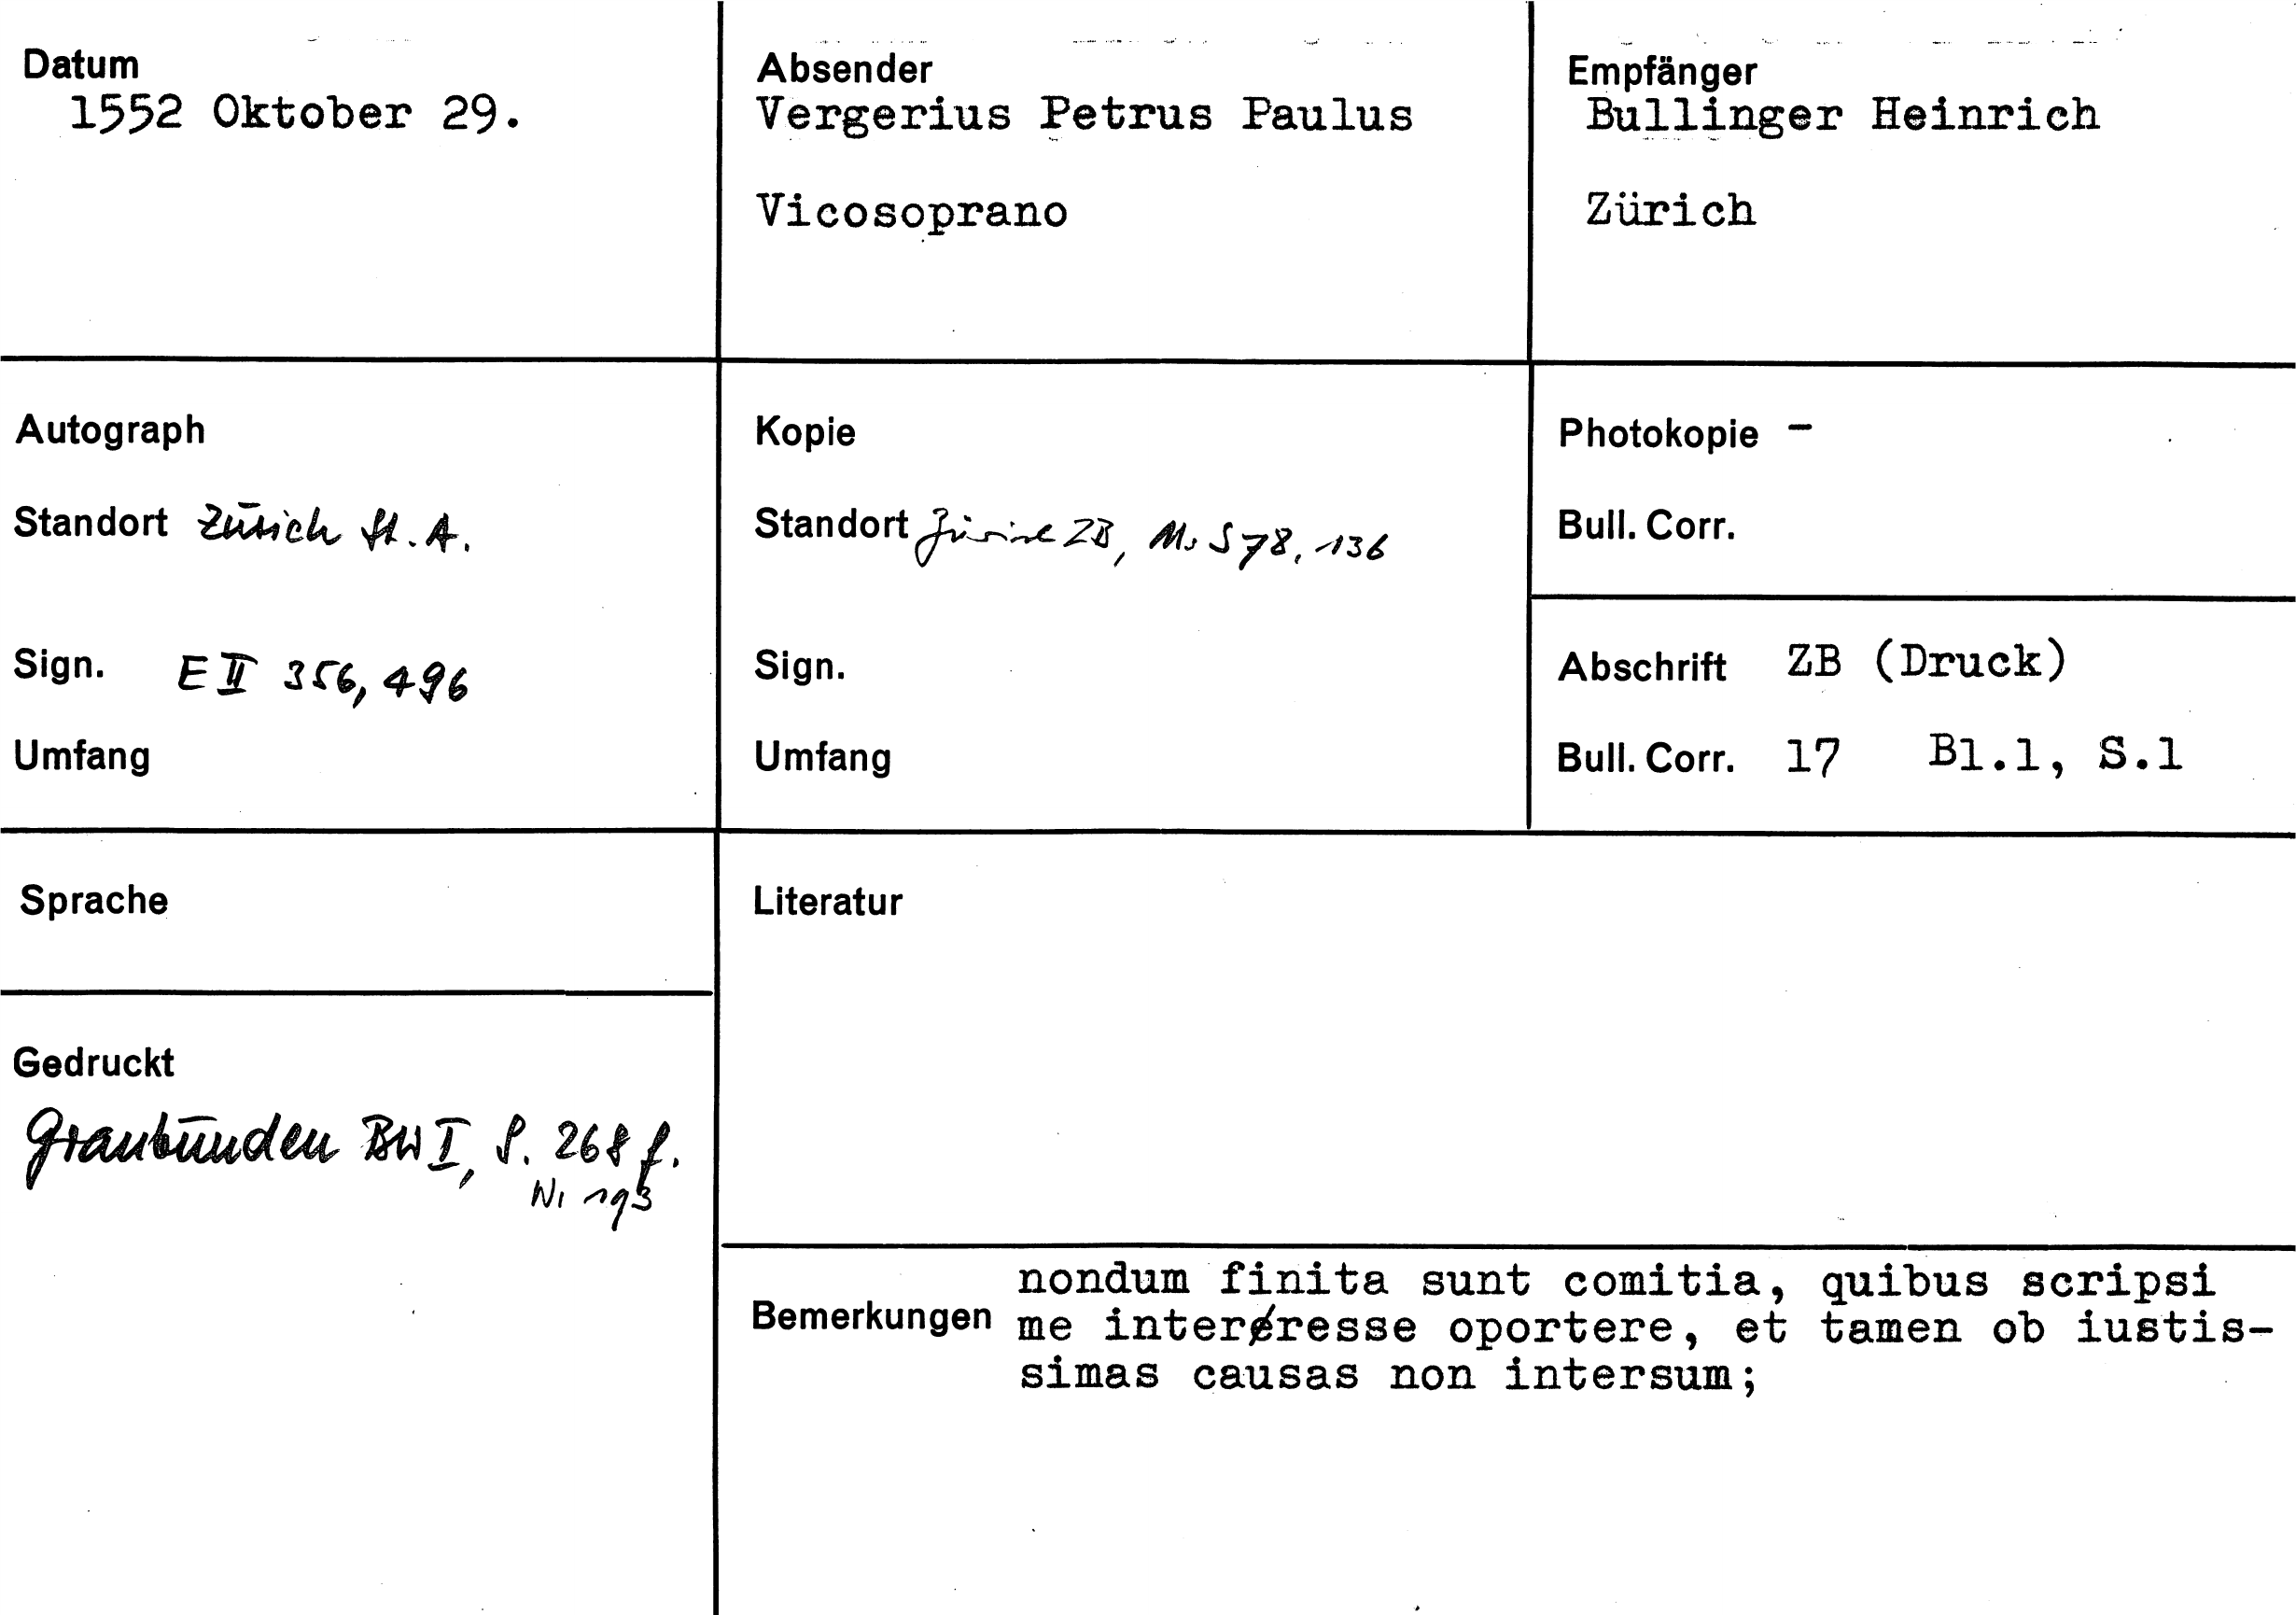 Datum
1552 Oktober 29.
Absender
Vergerius Petrus Paulus
Vicosoprano
Empfänger
Bullinger Heinrich
Zürich
Autograph
Standort Zürich St. A.
Sign. E II 356, 496
Umfang
Kopie
Standort Zürich ZB, Ms S 78, 136
Sign.
Umfang
Photokopie -
Bull. Corr.
Abschrift ZB (Druck)
Bull. Corr. 17 Bl.1, S.1
Sprache
Gedruckt
Graubünden BW I, S. 268 f.
Nr 193
Literatur
Bemerkungen
nondum finita sunt comitia, quibus scripsi
me interresse oportere, et tamen ob iustis-
simas causas non intersum;